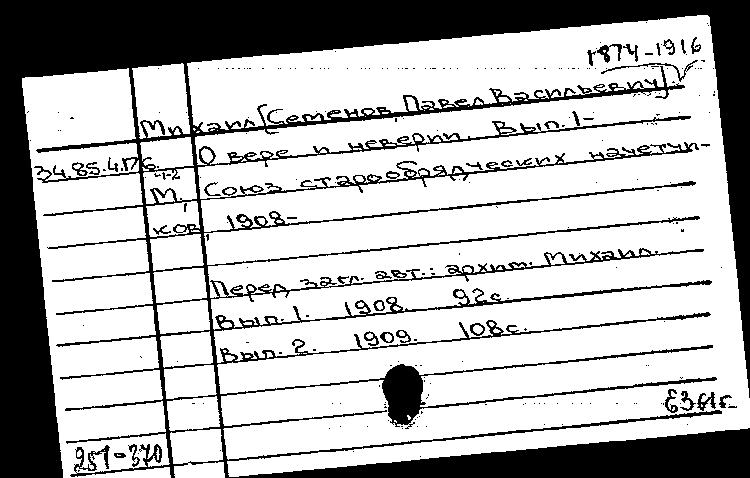 1874-1916
Михаил [Семенов, Павел Васильевич]
34.85.4.176 О вере и неверии. Вып. 1-
1-2
М., Союз старообрядческих начетчи-
ков, 1908-
Перед загл. авт.: архим. Михаил.
Вып. 1. 1908. 92с.
Вып. 2. 1909. 108с.
251-370